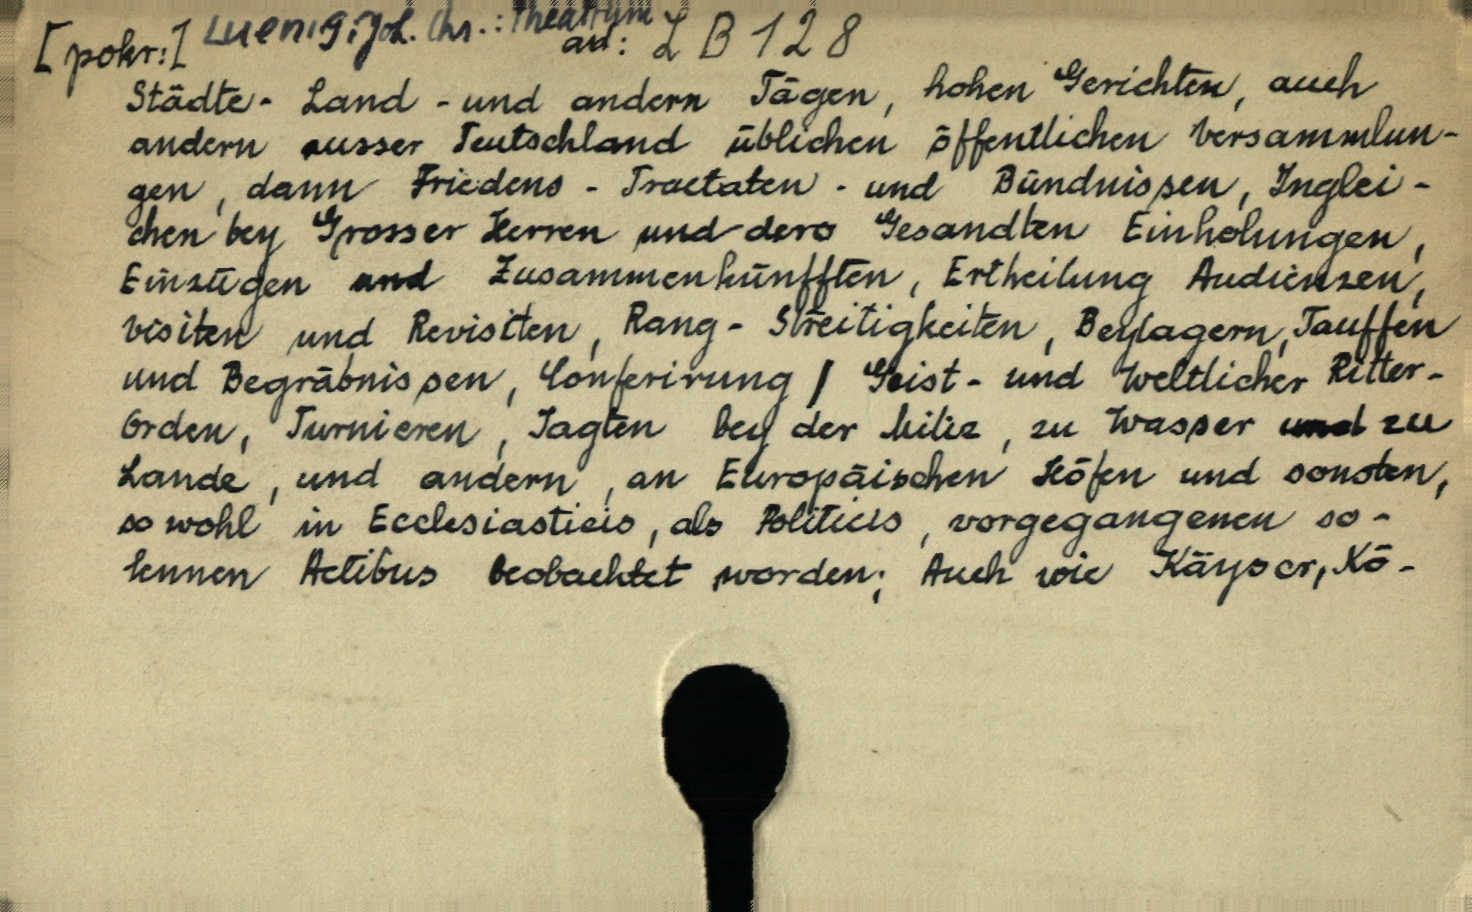 [pokr:] Luenig, Joh. Chr.: Theatrum
ad: L B 128
Städte- Land - und andern Tägen, hohen Gerichten, auch
andern ausser Teutschland üblichen öffentlichen Versammlun-
gen, dann Friedens - Tractaten - und Bündnissen, Inglei-
chen bey Grosser Herren und dero Gesandten Einholungen,
Einzügen und Zusammenkünfften, Ertheilung Audienzen,
Visiten und Revisiten, Rang - Streitigkeiten, Beylagern, Tauffen
und Begräbnissen, Conferirung / Geist - und Weltlicher Ritter-
Orden, Turnieren, Jagten bey der Miliz, zu Wasser und zu
Lande, und andern, an Europäischen Höfen und sonsten,
so wohl in Ecclesiasticis, als Politicis, vorgegangenen so-
lennen Actibus beobachtet worden; Auch wie Käyser, Kö-